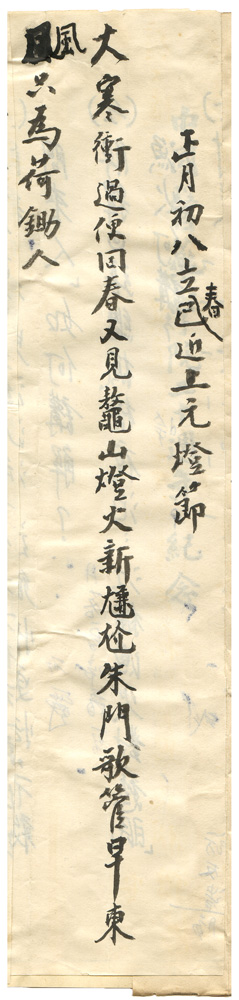 正月初八立春已近上元燈節
大寒衝過便回春又見鼇山燈火新尷尬朱門歌管早東
風只為荷鋤人